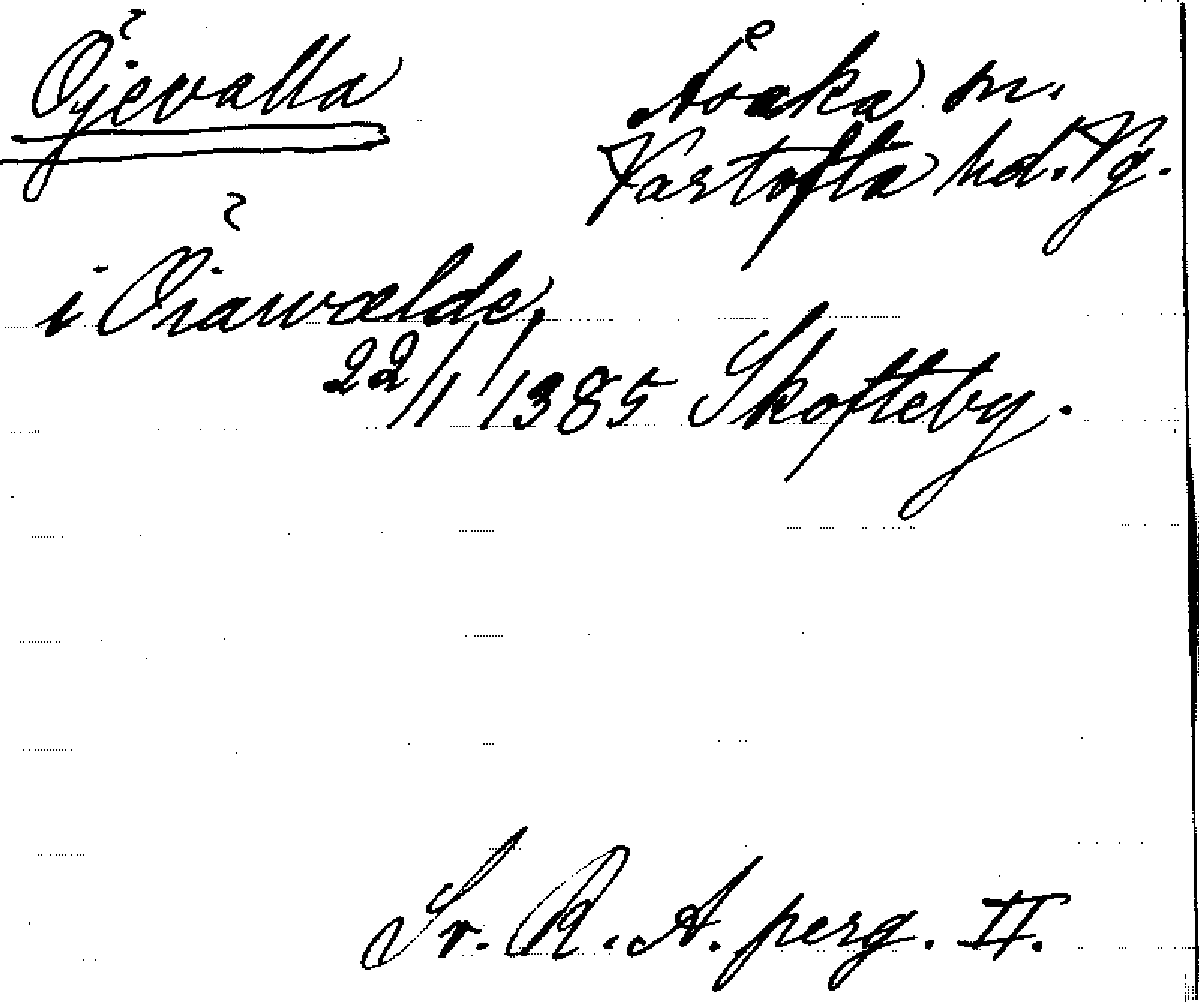 Öjevalla
Åsaka sn.
Vartofta hd. Vg.
i Öiawælde,
22/1 1385 Skofteby.
Sv. R. A. perg. II.